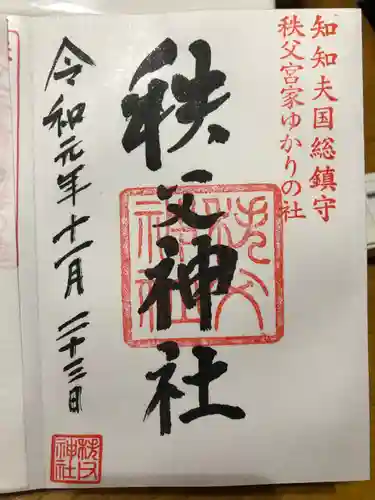 知知夫国総鎮守
秩父宮家ゆかりの社
秩父神社
令和元年十一月二十三日
秩父神社
秩父神社